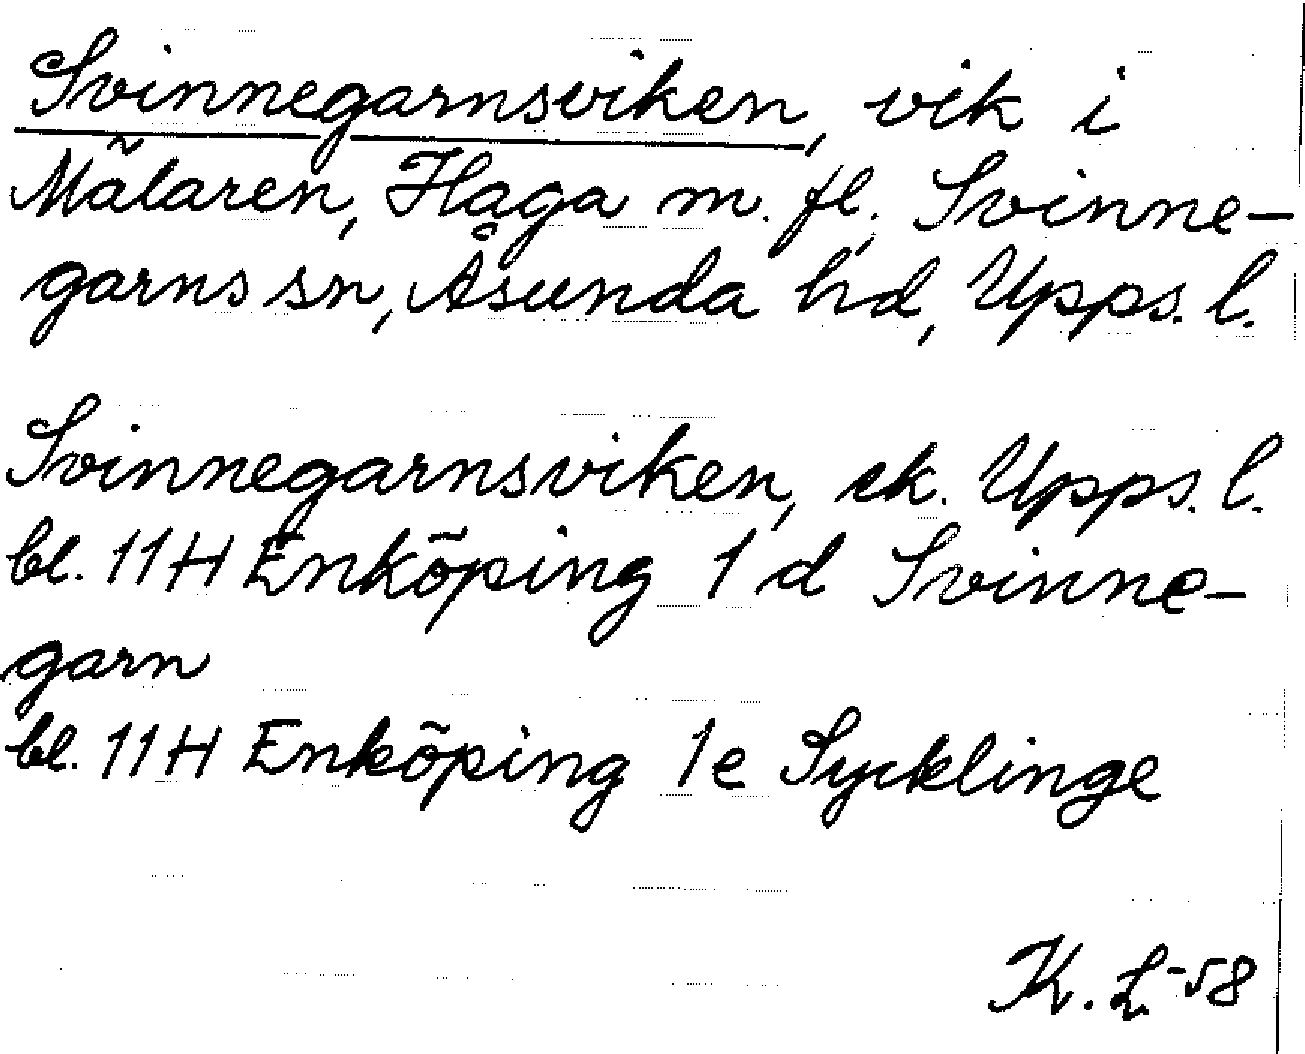 Svinnegarnsviken, vik i
Mälaren, Haga m. fl., Svinne-
garns sn, Åsunda hd, Upps. l.
Svinnegarnsviken, ek. Upps. l.
bl. 11H Enköping 1d Svinne-
garn
bl. 11H Enköping 1e Sycklinge
K. L. -58